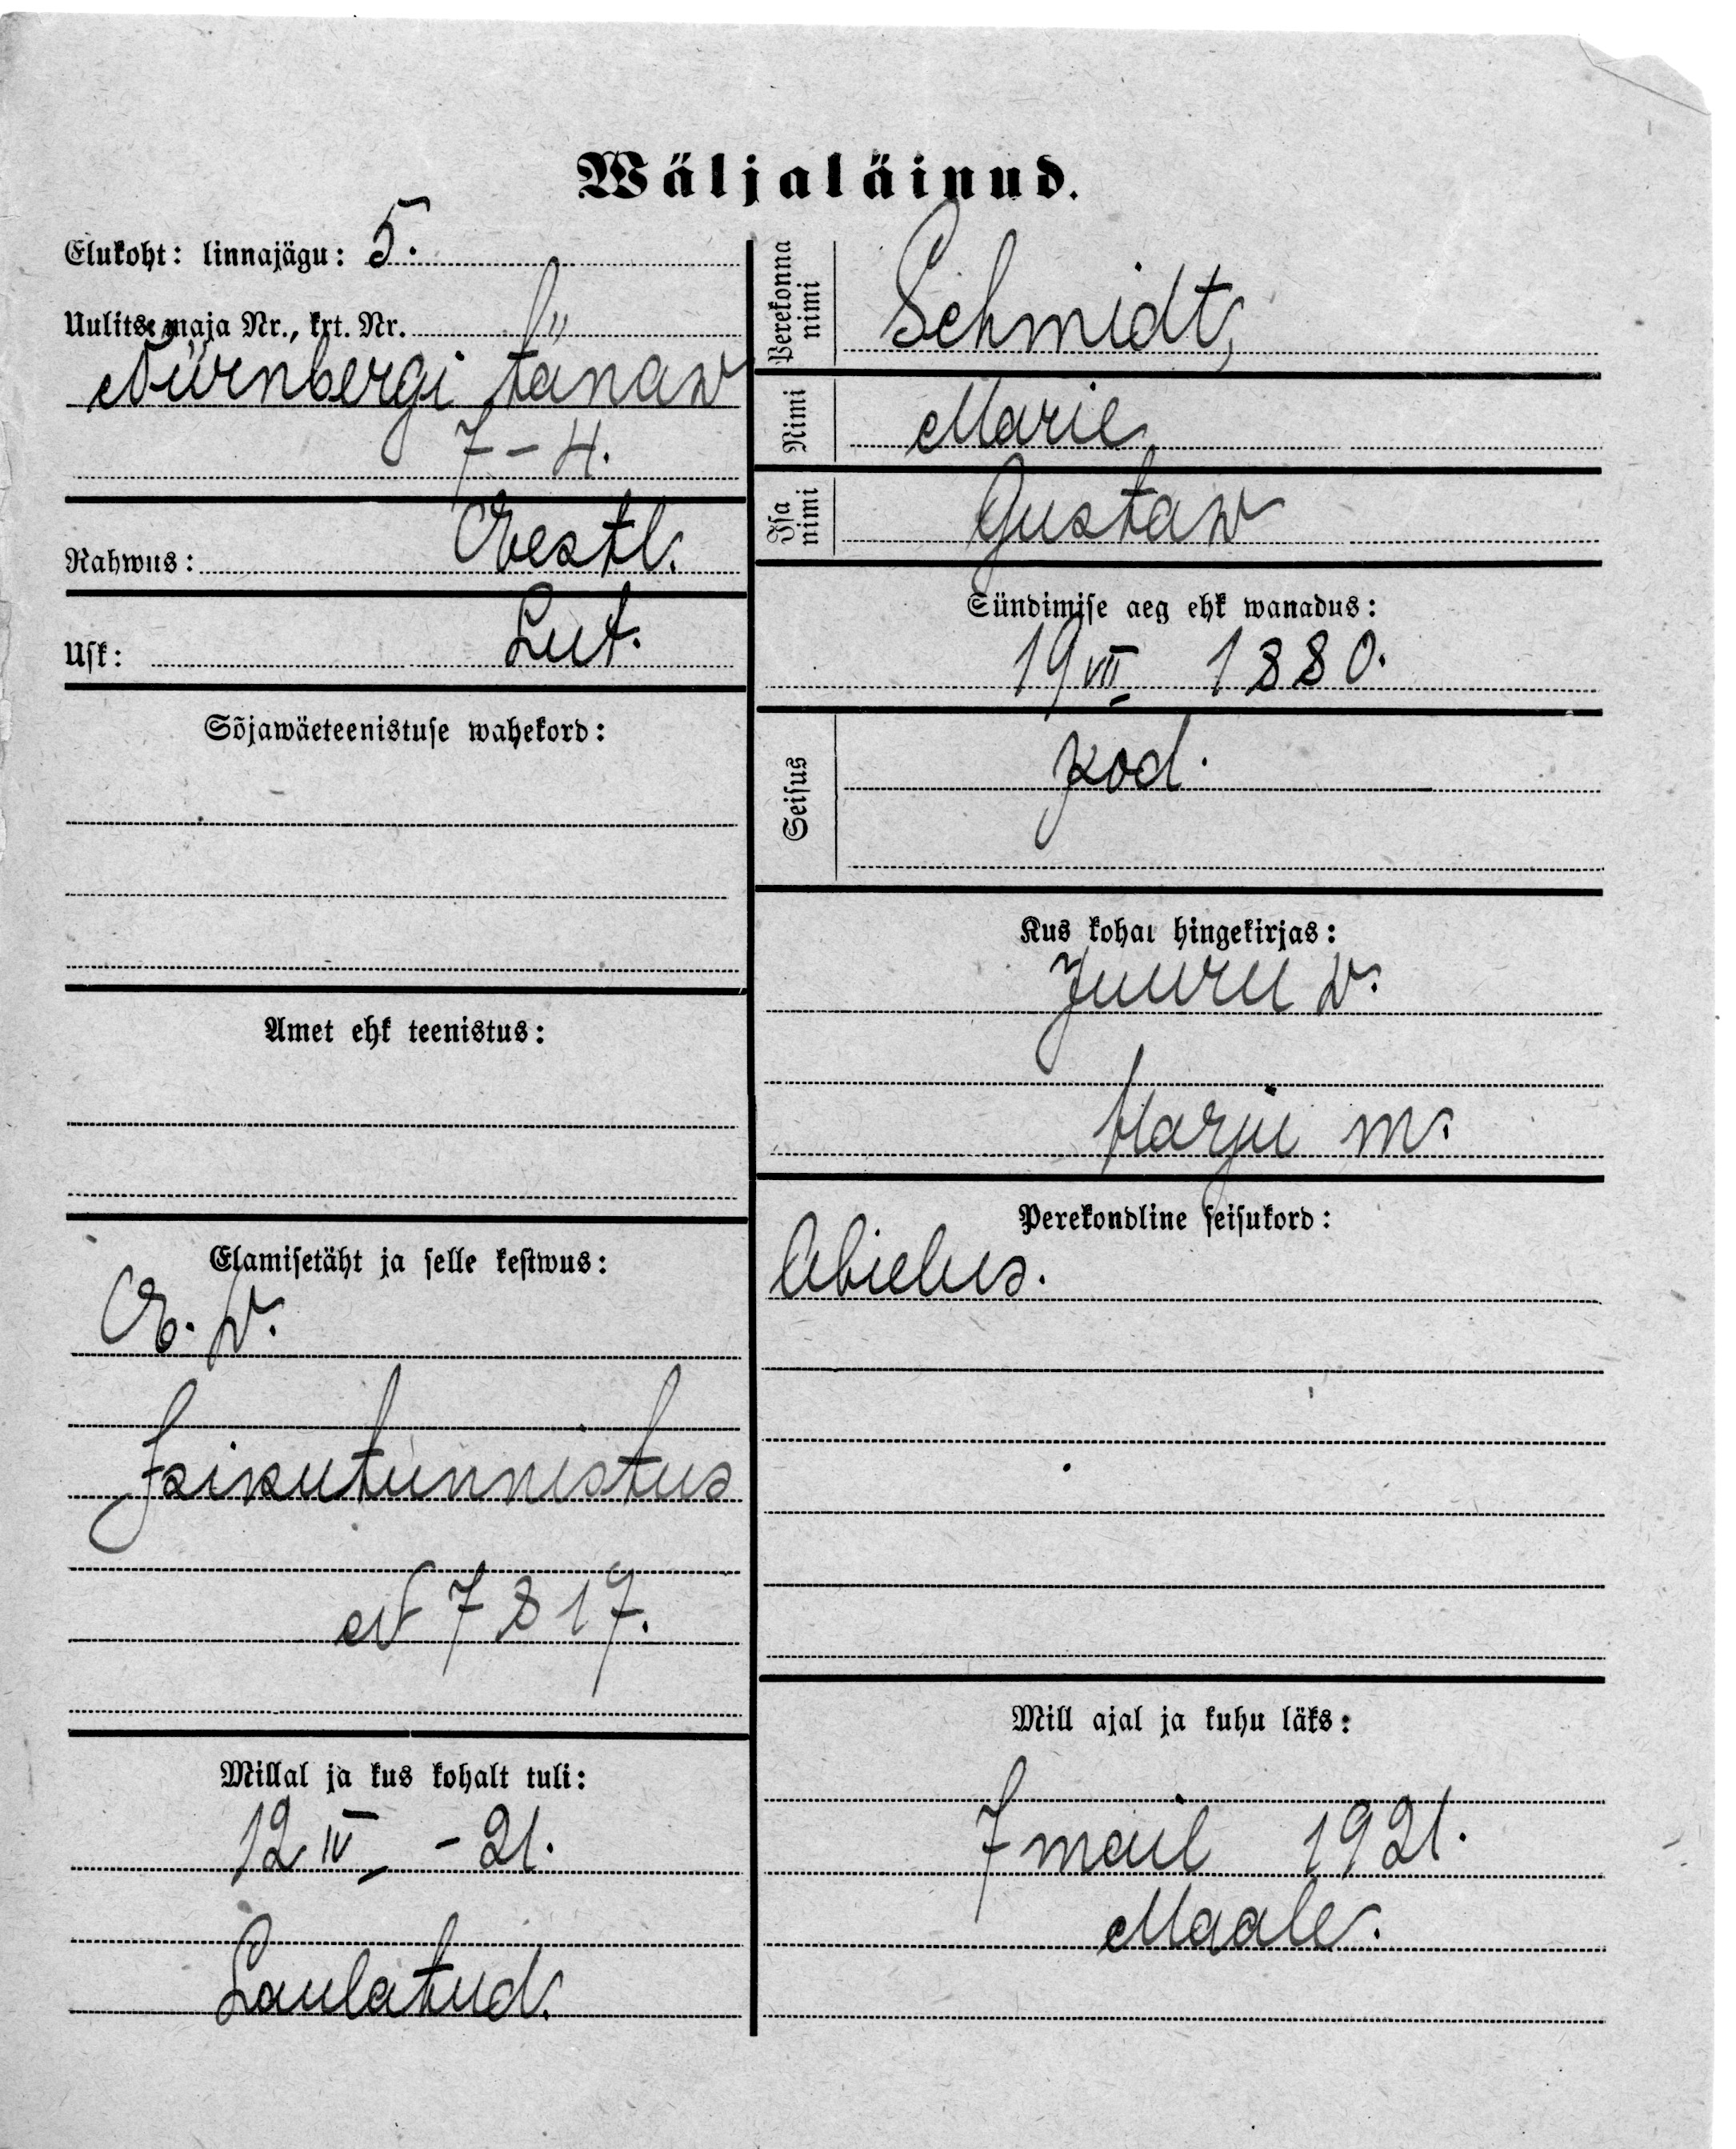 Wäljaläinud.
Elukoht: linnajägu: 5.
Uulits, maja Nr., krt. Nr.
Nürnbergi tänaw
7-4.
Rahwus: Eestl.
Usk: Lut.
Sõjawäeteenistuse wahekord:
Amet ehk teenistus:
Elamisetäht ja selle kestwus:
E. W.
Isikutunnistus
N 7817.
Millal ja kus kohalt tuli:
12 IV - 21.
Laulatud.
Perekonna nimi Schmidt,
Nimi Marie
Isa nimi Gustaw
Sündimise aeg ehk wanadus:
19 VII 1880.
Seisus kod.
Kus kohal hingekirjas:
Juuru w.
Harju m.
Perekondline seisukord:
Abielus.
Mill ajal ja kuhu läks:
7 mail 1921.
Maale.